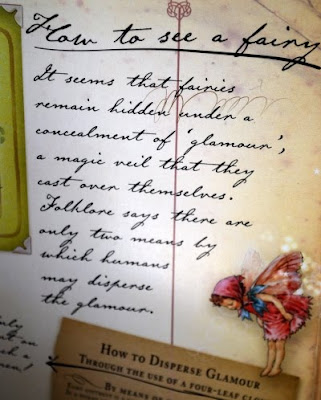 How to see a fairy
It seems that fairies
remain hidden under a
concealment of 'glamour',
a magic veil that they
cast over themselves.
Folklore says there are
only two means by
which humans
may disperse
the glamour.
HOW TO DISPERSE GLAMOUR
THROUGH THE USE OF A FOUR-LEAF
BY MEANS